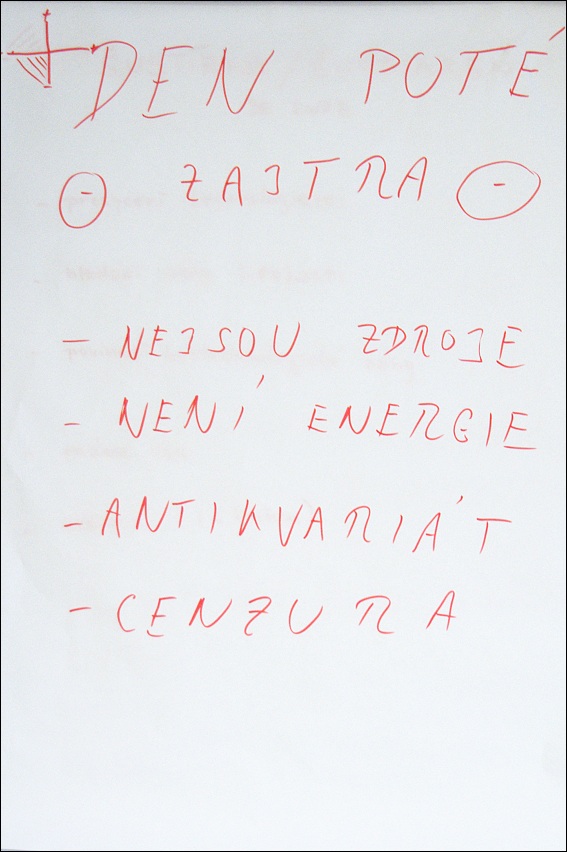 DEN POTÉ
- ZAJTRA -
- NEJSOU ZDROJE
- NENÍ ENERGIE
- ANTIKVARIÁT
- CENZURA